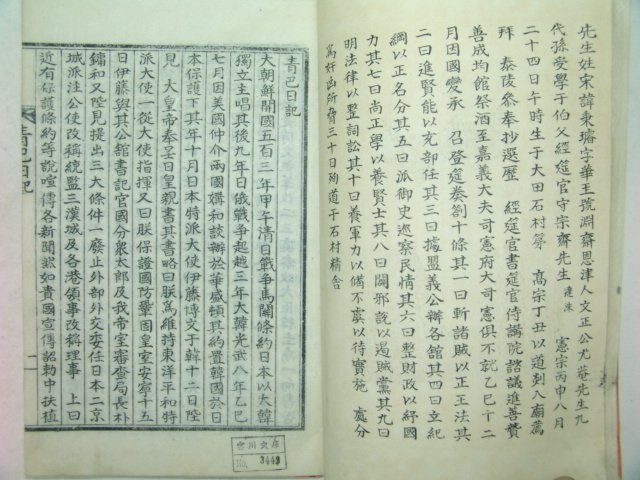 先生姓宋諱秉璿字華玉號淵齋恩津人文正公尤菴先生九
代孫受學于伯父經筵官守宗齋先生達洙 憲宗丙申八月
二十四日午時生于大田石村第 高宗丁丑以道到八剡薦
拜 泰陵參奉抄選歷 經筵官書筵官侍講院諮議進善贊
善成均館祭酒至嘉義大夫司憲府大司憲俱不就乙巳十二
月因國變承 召登筵奏劄十條其一曰斬諸賊以正王法其
二曰進賢能以充部任其三曰據盟義公辦各館其四曰立紀
綱以正名分其五曰派御史巡察民情其六曰整財政以紓國
力其七曰尚正學以養賢士其八曰闢邪說以遏賊黨其九曰
明法律以整詞訟其十曰養軍力以備不虞以待實施 處分
爲奸凶所脅三十日殉道于石村精舍
靑巴日記
大朝鮮開國五百三年甲午清日戰爭馬關條約日本以大韓
獨立主唱其後九年日俄戰爭起越三年大韓光武八年乙巳
七月因美國仲介兩國媾和談辦於華盛頓其約置韓國於日
本保護下其年十月日本特派大使伊藤博文于韓十二日陛
見 大皇帝奉呈日皇親書其書略曰朕爲維持東洋平和特
派大使一從大使指揮又曰朕保護國防鞏固皇室安寧十五
日伊藤與其公館書記官國分象太郎及我帝室審查局長朴
鏞和又陛見提出三大條件一廢止外部外交委任日本二京
城派注公使改稱統監三漢城及各港領事改稱理事 上曰
近有保護條約等說喧傳各新聞然如貴國宣傳詔勅中扶植
靑巴日記
一
No. 3449